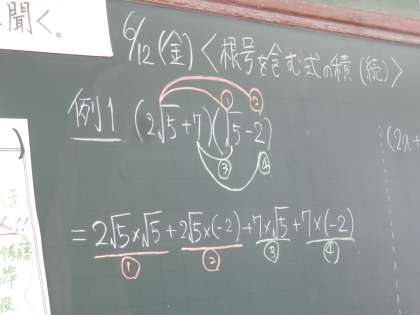 聞く。
6/12(金)〈根号を含む式の積(続)〉
例1 (2√5+7)(√5-2)
① ②
③ ④
(2x+
=2√5×√5+2√5×(-2)+7×√5+7×(-2)
① ② ③ ④